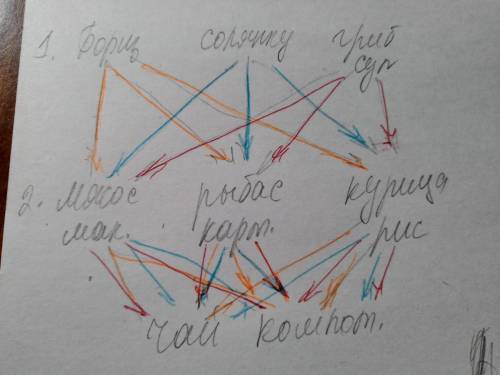 1. Борщ солянку гриб
суп
2. Мясо с рыба с курица
мак. карт. рис
чай компот.